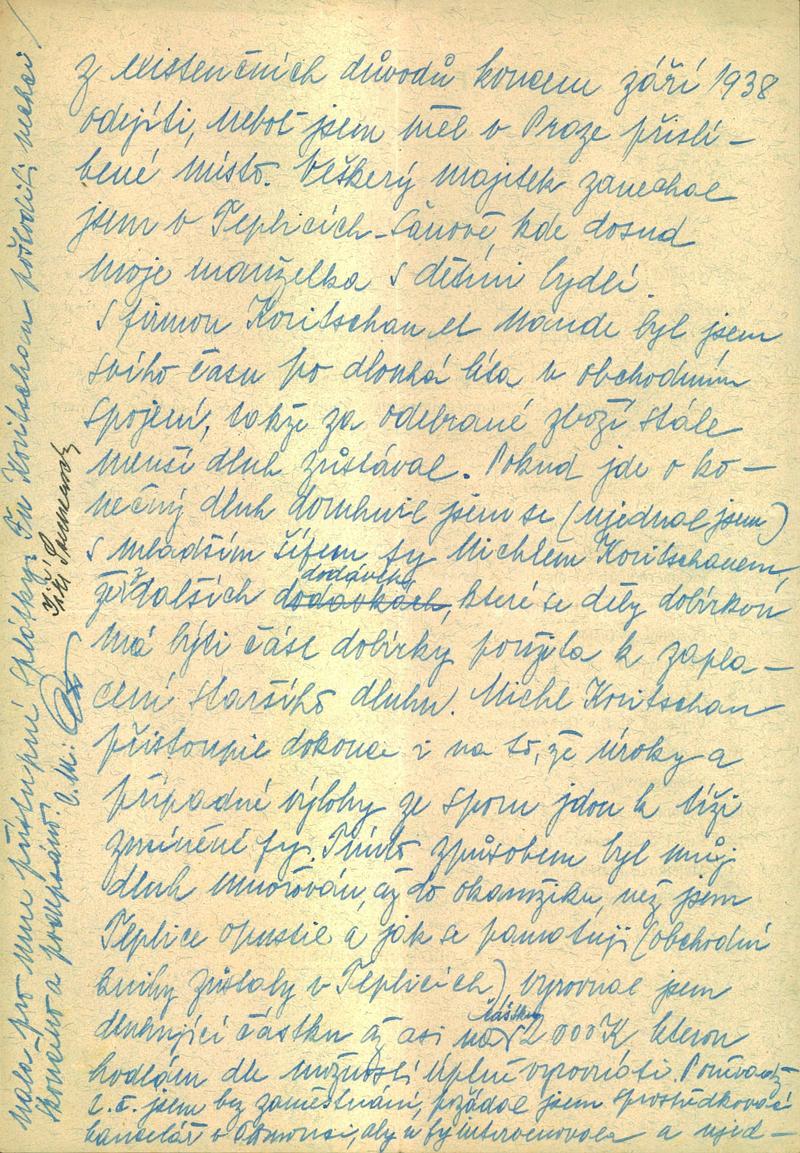 z existenčních důvodů koncem září 1938
odejíti, neboť jsem měl v Praze přislí-
bené místo. Veškerý majetek zanechal
jsem v Teplicích-Šanově, kde dosud
moje manželka s dětmi bydlí.
S firmou Koritschan et Mande byl jsem
svého času po dlouhá léta v obchodním
spojení, takže za odebrané zboží stále
menší dluh zůstával. Pokud jde o ko-
nečný dluh domluvil jsem se (ujednal jsem)
s mladším šéfem fy Michlem Koritschanem,
dodávek
že z dalších dodávkách, které se děly dobírkou
má býti část dobírky použita k zapla-
cení staršího dluhu. Michl Koritschan
přistoupil dokonce i na to, že úroky a
případné výlohy ze sporu jdou k tíži
zmíněné fy. Tímto způsobem byl můj
dluh umořován, až do okamžiku, než jsem
Teplice opustil a jak se pamatuji (obchodní
knihy zůstaly v Teplicích), vyrovnal jsem
částku
dlužnící částku až asi na 2000 K kterou
hodlám dle možnosti úplně vyrovnati. Poněvadž
t. č. jsem bez zaměstnání, požádal jsem sprostředkovací
kancelář v Olomouci, aby u fy intervenovala a ujed-
nala pro mne přístupné splátky. Fu Koritschan poškoditi nechci
Skončeno a podepsáno. v. m:
Jiří